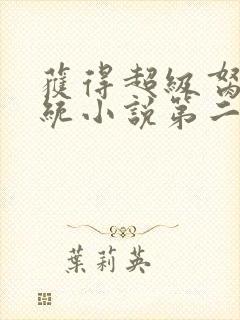 獲得超級
統小說第二
葉莉英